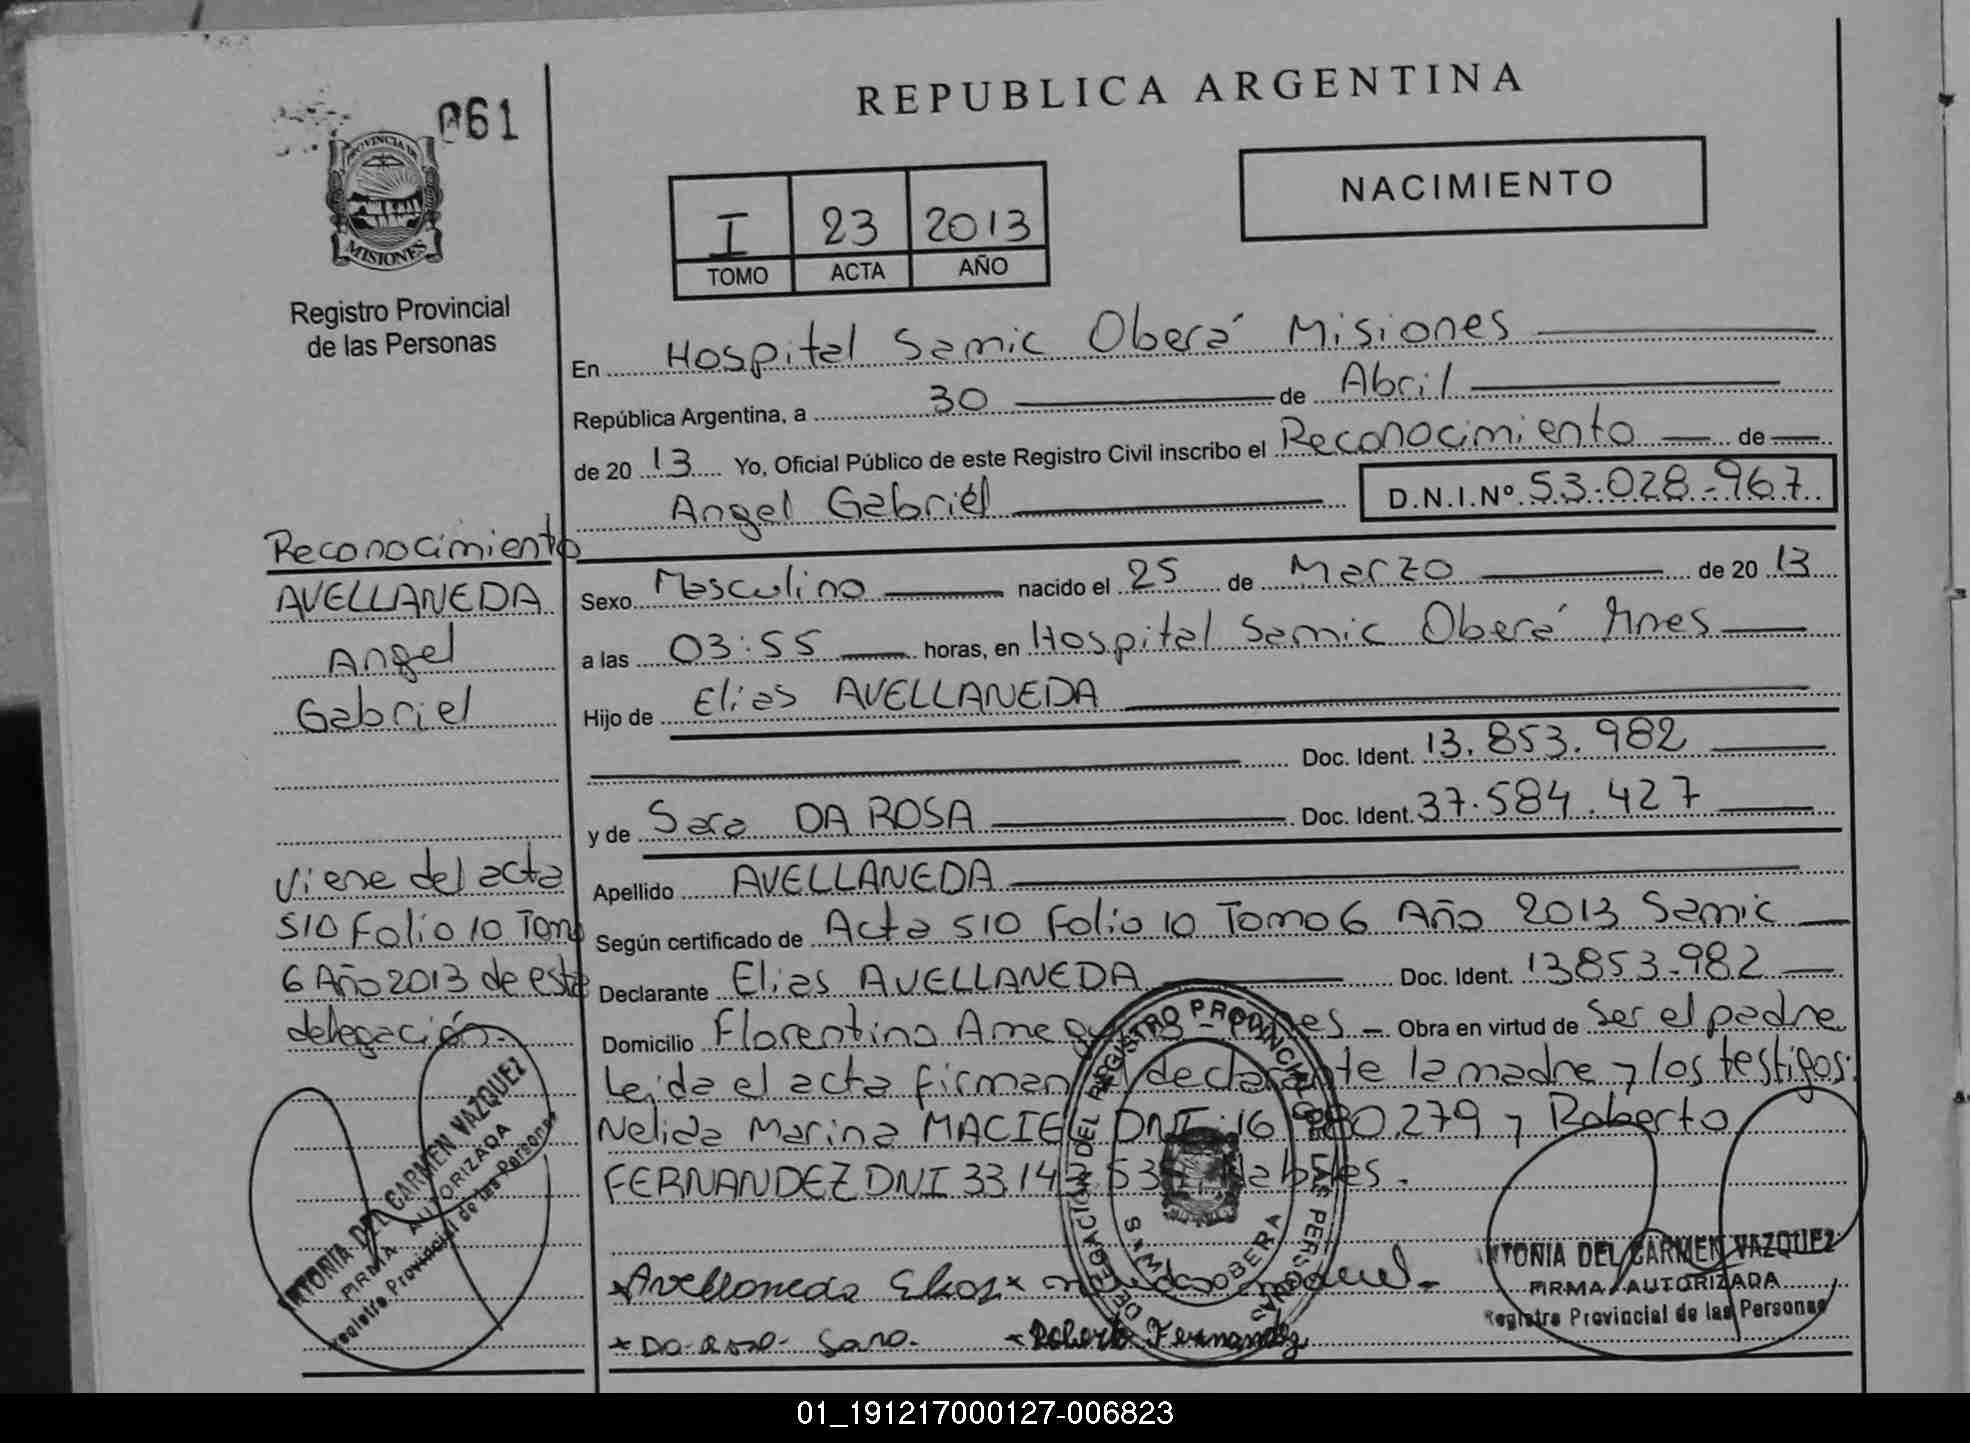 061
PROVINCIA DE
MISIONES
Registro Provincial
de las Personas
REPUBLICA ARGENTINA
I 23 2013
TOMO ACTA AÑO
NACIMIENTO
En Hospital Samic Oberá Misiones
República Argentina, a 30 de Abril
de 20 13 Yo, Oficial Público de este Registro Civil inscribo el Reconocimiento de
Angel Gabriel D.N.I.Nº 53.028.967
Sexo Masculino nacido el 25 de Marzo de 20 13
a las 03:55 horas, en Hospital Samic Oberá Mnes
Hijo de Elias AVELLANEDA
Doc. Ident. 13.853.982
y de Sara DA ROSA Doc. Ident. 37.584.427
Apellido AVELLANEDA
Según certificado de Acta 510 Folio 10 Tomo 6 Año 2013 Samic
Declarante Elias AVELLANEDA Doc. Ident. 13853.982
Domicilio Florentino Obra en virtud de ser el padre
Leida el acta firman declarante la madre y los testigos:
Nelida Marina MACIEL DNI 16 980.279 y Roberto
FERNANDEZ DNI 33.14
Avellaneda Elias
Da Rosa Sara. Roberto Fernandez
Reconocimiento
AVELLANEDA
Angel
Gabriel
Viene del acta
510 Folio 10 Tomo
6 Año 2013 de esta
delegación.
ANTONIA DEL CARMEN VAZQUEZ
FIRMA AUTORIZADA
Registro Provincial de las Personas
DELEGACION DEL REGISTRO PROVINCIAL DE LAS PERSONAS
OBERA
ANTONIA DEL CARMEN VAZQUEZ
FIRMA AUTORIZADA
Registro Provincial de las Personas
01_191217000127-006823